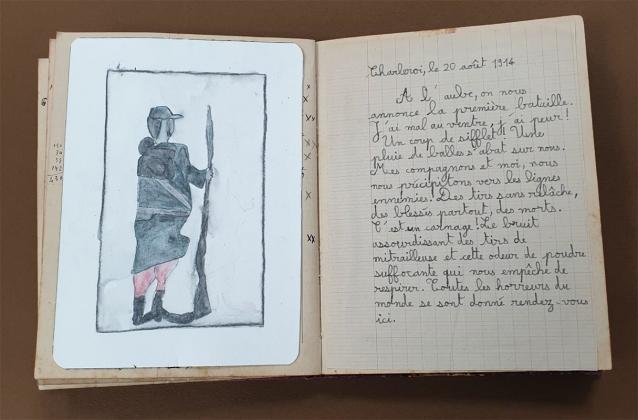 Charleroi, le 20 août 1914
A l'aube, on nous
annonce la première bataille.
J'ai mal au ventre, j'ai peur!
Un coup de sifflet! Une
pluie de balles s'abat sur nous.
Mes compagnons et moi, nous
nous précipitons vers les lignes
ennemies. Des tirs sans relâche,
des blessés partout, des morts.
C'est un carnage! Le bruit
assourdissant des tirs de
mitrailleuse et cette odeur de poudre
suffocante qui nous empêche de
respirer. Toutes les horreurs du
monde se sont donné rendez-vous
ici.